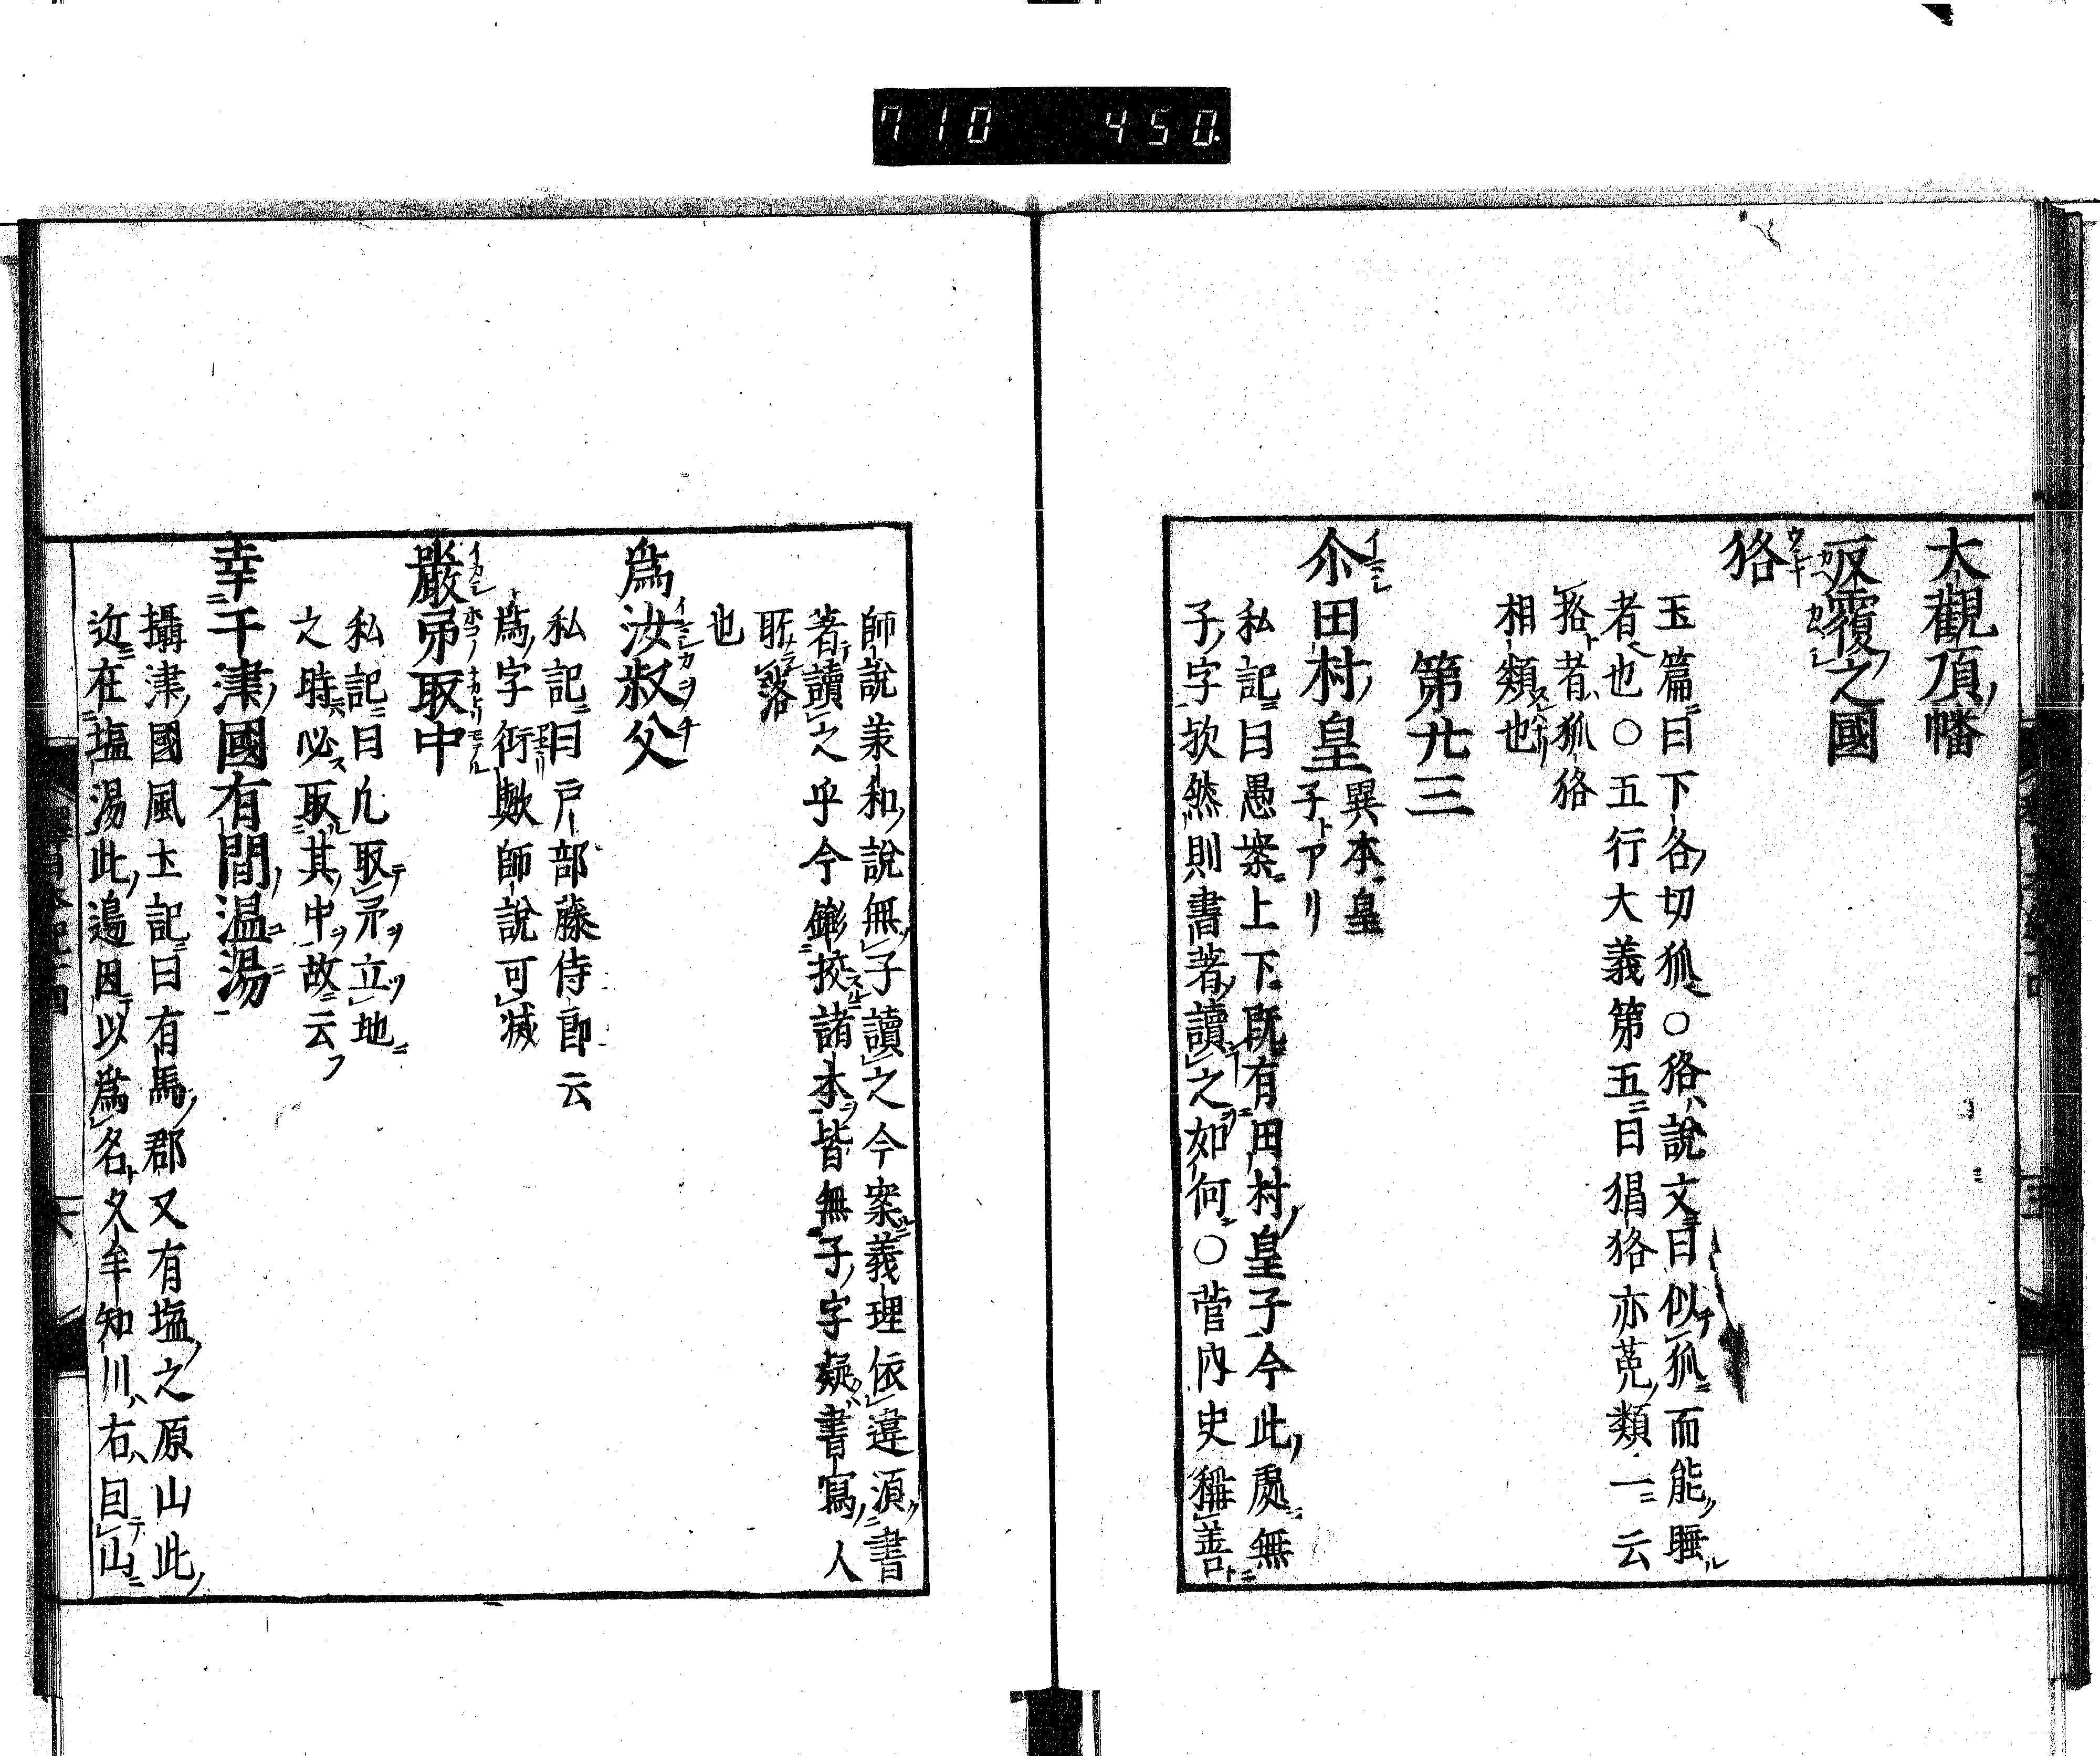 710 450
大觀頂幡
反覆之國
狢
玉篇曰下各切狐○狢說文曰似狐而能睡
者也○五行大義第五曰狷狢亦菟類一云
狢者狐狢
相類也
第廿三
尒田村皇異本皇子トアリ
私記曰愚案上下既有田村皇子今此處無
子字欤然則書著讀之如何○菅内史稱善
師說兼和說無子讀之今案義理依違須書
著讀之乎今挍諸本皆無子字疑書寫人
所落
也
爲汝叔父
私記曰戸部藤侍郎云
爲字衍歟師說可减
嚴矛取中
私記曰凡取矛立地
之時必取其中故云フ
幸干津國有間温湯
攝津國風土記曰有馬郡又有塩之原山此
近在塩湯此邊因以爲名久牟知川右因山